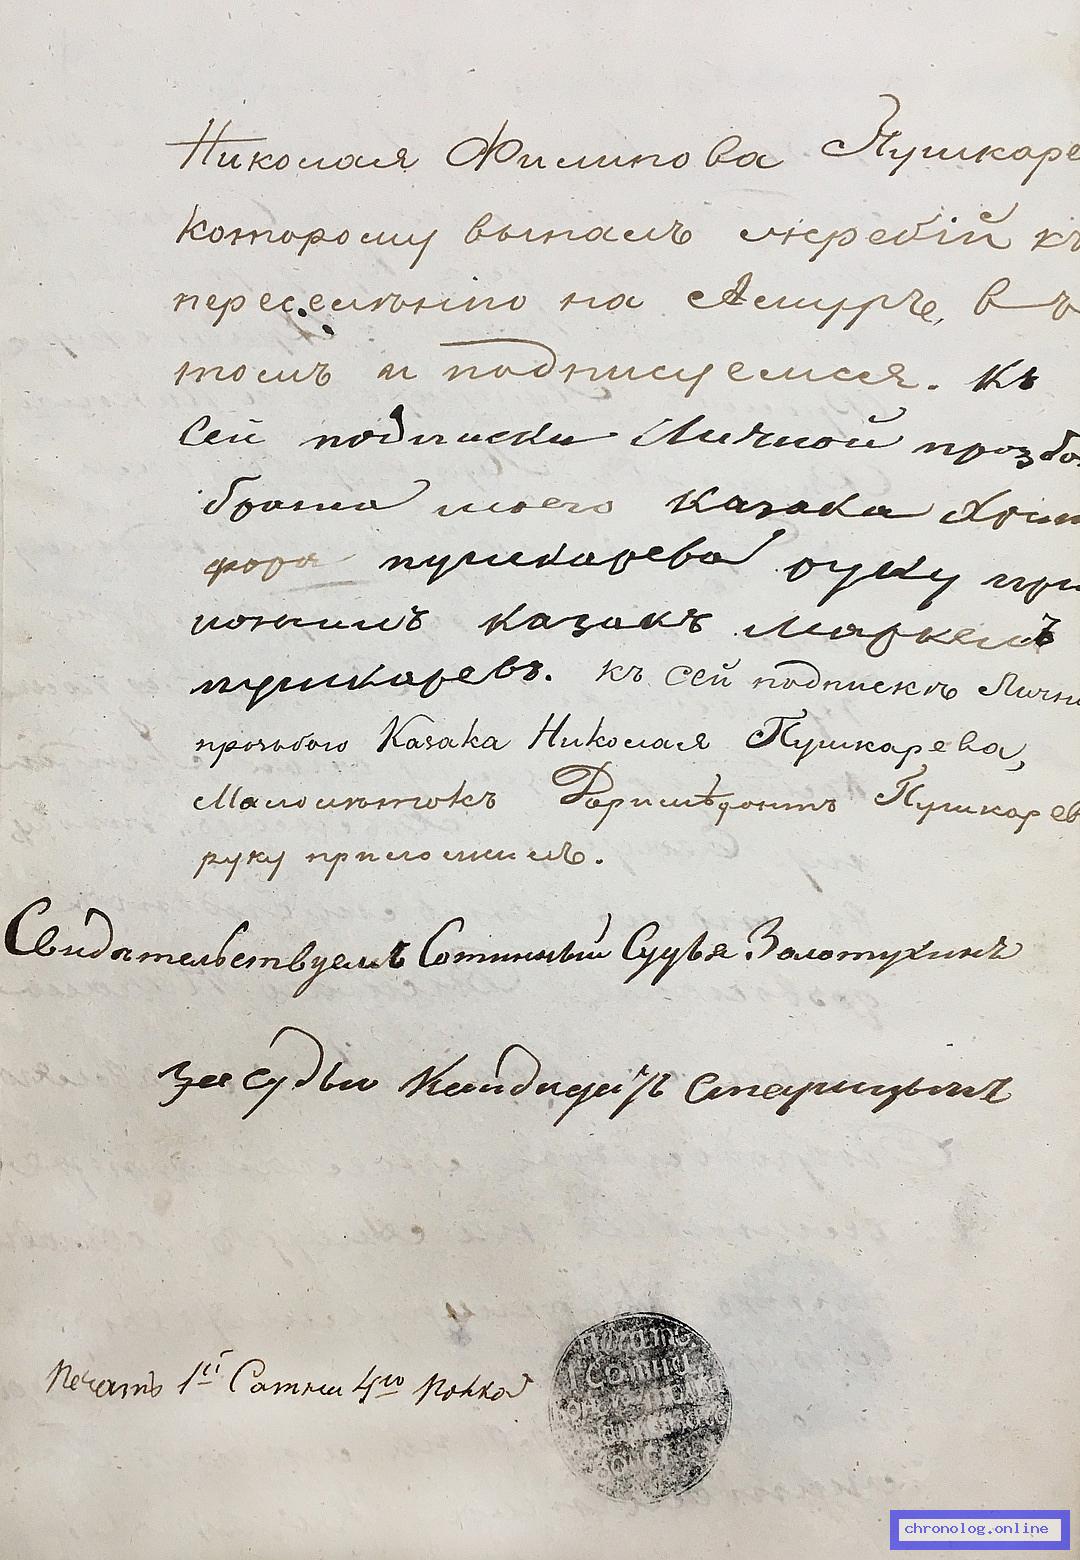 Николая Филипова Пушкаре
которому выпалъ жребій къ
переселѣнію на Амуръ, въ
томъ и подписуемся. Къ
сей подписки личной прозбо
брата моего казака Христ
фора пушкарева руку при
ложилъ казакъ Маркелъ
пушкаревъ. къ сей подпискѣ Личн
прозьбою Казака Николая Пушкарева,
Малолѣтокъ Пушкарев
руку приложилъ.
Свидательствуемъ Сотенный Судья Золотухинъ
за судьи Кандидатъ Старицынъ
Печать 1й Сотни 4го Полка
Печать
1 Сотни
chronolog.online